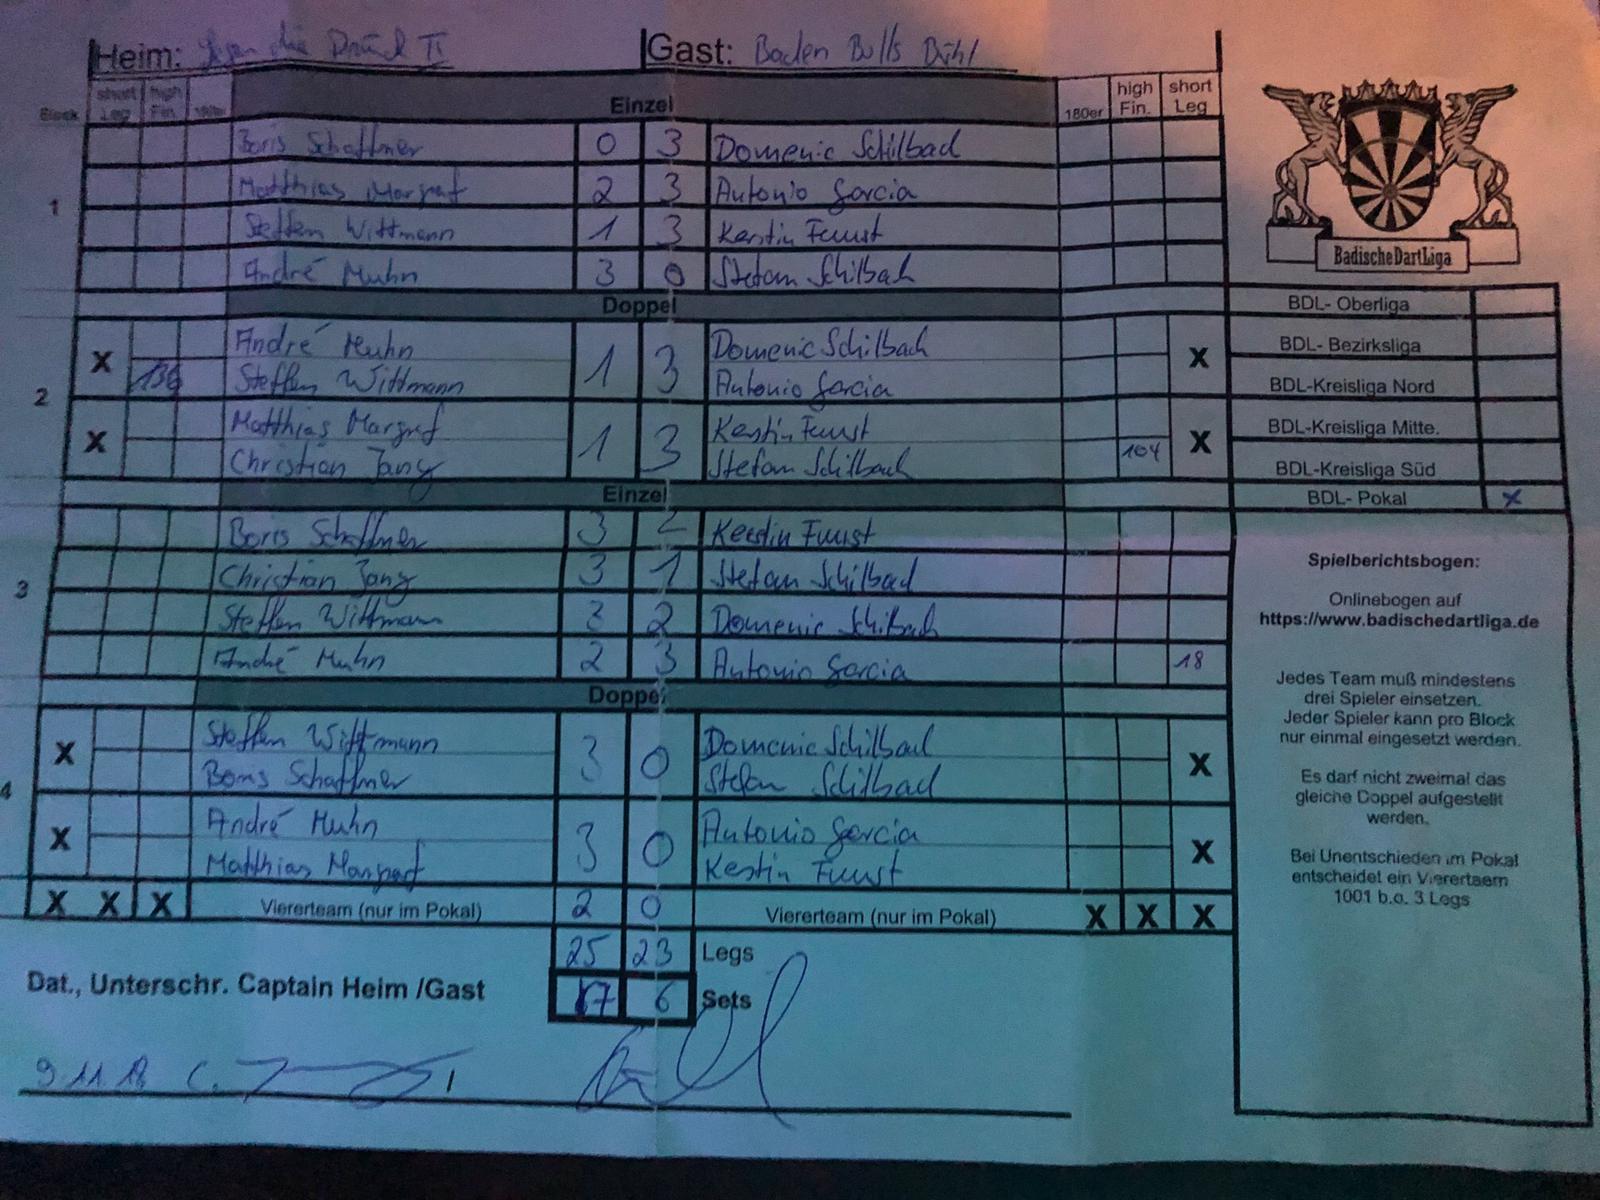 Heim: die Druck II Gast: Baden Bulls Bühl
Block short Leg high Fin. 180er Einzel 180er high Fin. short Leg
Boris Schaffner 0 3 Domenic Schilbach
1 Matthias Margraf 2 3 Antonio Garcia
Steffen Wittmann 1 3 Kerstin Fuust
André Huhn 3 0 Stefan Schilbach
Doppel
2 X André Huhn 1 3 Domenic Schilbach X
136 Steffen Wittmann Antonio Garcia
X Matthias Margraf 1 3 Kerstin Fuust X
Christian Jany Stefan Schilbach 104
Einzel
Boris Schaffner 3 2 Kerstin Fuust
3 Christian Jany 3 1 Stefan Schilbach
Steffen Wittmann 3 2 Domenic Schilbach
André Huhn 2 3 Antonio Garcia 18
Doppel
4 X Steffen Wittmann 3 0 Domenic Schilbach X
Boris Schaffner Stefan Schilbach
X André Huhn 3 0 Antonio Garcia X
Matthias Margraf Kerstin Fuust
X X X Viererteam (nur im Pokal) 2 0 Viererteam (nur im Pokal) X X X
25 23 Legs
Dat., Unterschr. Captain Heim /Gast 7 6 Sets
9.11.18
BadischeDartLiga
BDL- Oberliga
BDL- Bezirksliga
BDL-Kreisliga Nord
BDL-Kreisliga Mitte.
BDL-Kreisliga Süd
BDL- Pokal X
Spielberichtsbogen:
Onlinebogen auf
https://www.badischedartliga.de
Jedes Team muß mindestens
drei Spieler einsetzen.
Jeder Spieler kann pro Block
nur einmal eingesetzt werden.
Es darf nicht zweimal das
gleiche Doppel aufgestellt
werden.
Bei Unentschieden im Pokal
entscheidet ein Viererteam
1001 b.o. 3 Legs